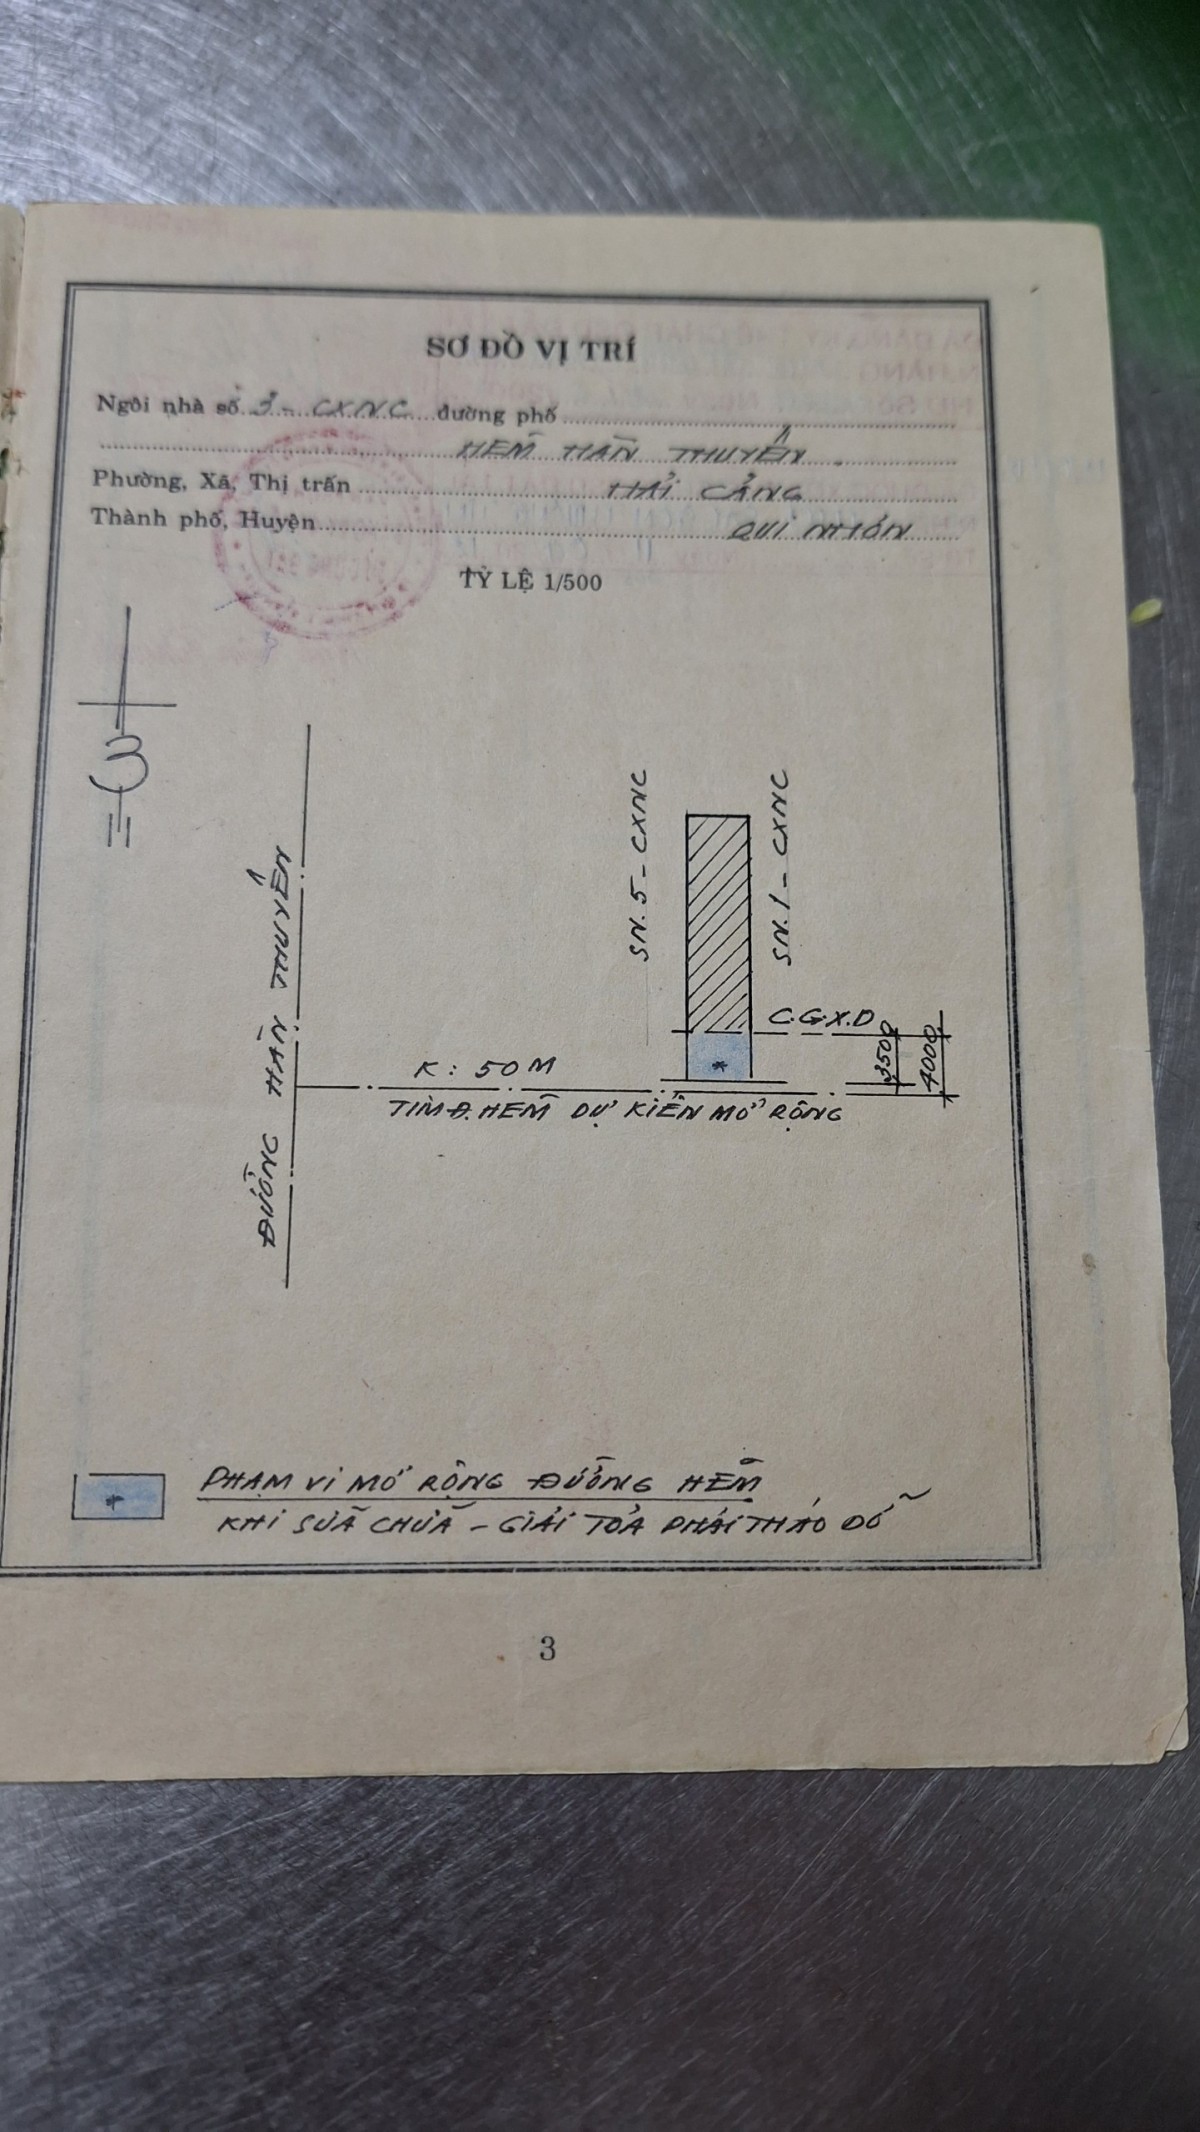 SƠ ĐỒ VỊ TRÍ
Ngôi nhà số 3 - CXNC đường phố
HẺM HÀN THUYÊN.
Phường, Xã, Thị trấn HẢI CẢNG
Thành phố, Huyện QUI NHƠN
TỶ LỆ 1/500
SN. 5 - CXNC
SN. 1 - CXNC
C.G.X.D
3500
4000
*
ĐƯỜNG HÀN THUYÊN
K: 50M
TIM Đ.HẺM DỰ KIẾN MỞ RỘNG
* PHẠM VI MỞ RỘNG ĐƯỜNG HẺM
KHI SỬA CHỬA - GIẢI TỎA PHẢI THÁO DỠ
3